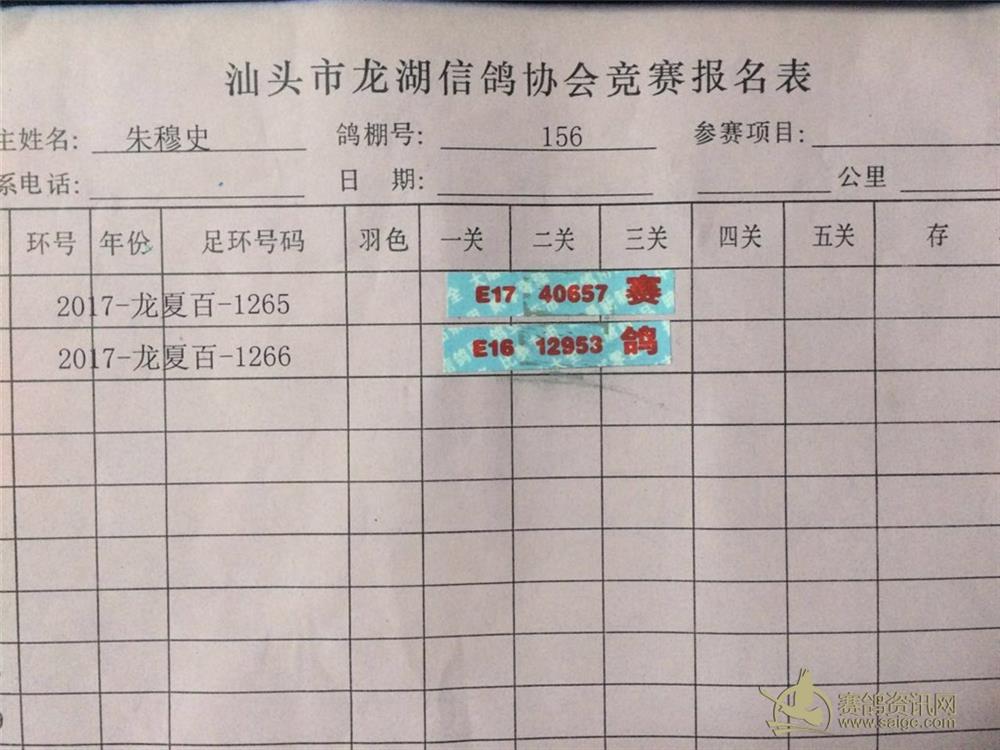 汕头市龙湖信鸽协会竞赛报名表
主姓名: 朱穆史 鸽棚号: 156 参赛项目:
系电话: 日 期: 公里
环号 年份 足环号码 羽色 一关 二关 三关 四关 五关 存
2017-龙夏百-1265 E17 40657 赛
2017-龙夏百-1266 E16 12953 鸽
赛鸽资讯网
www.saigc.com